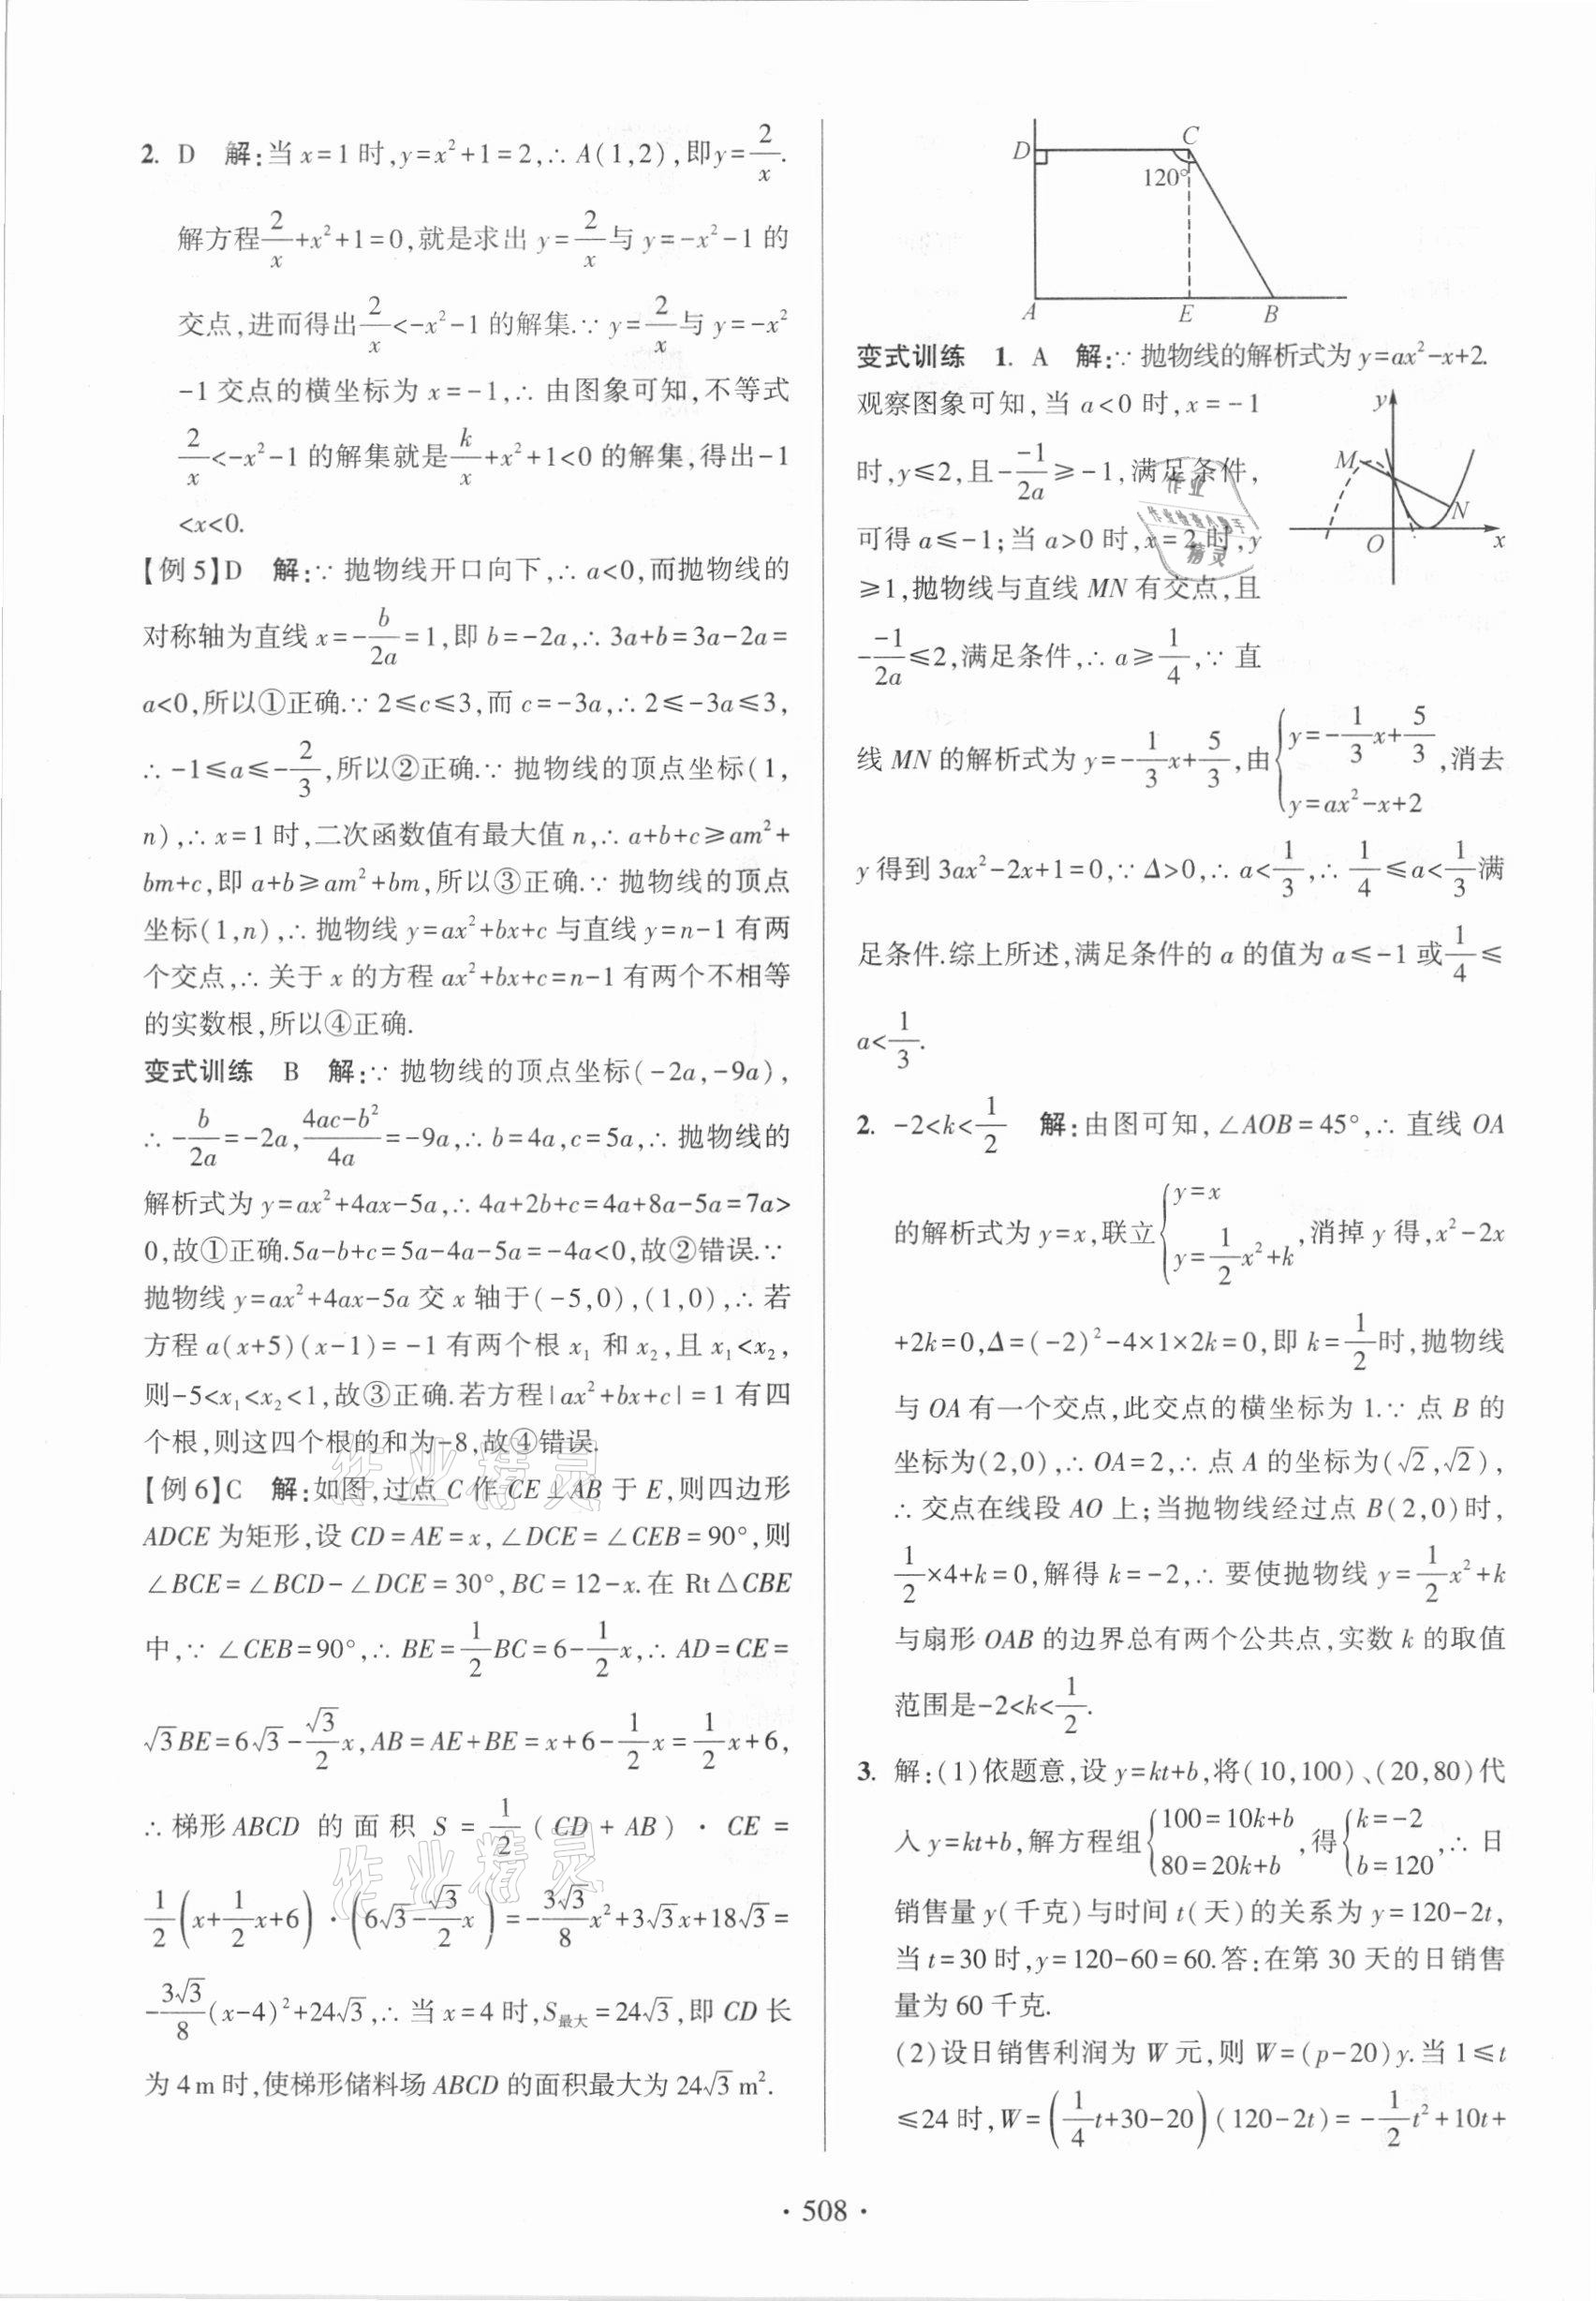 2. D 解:当 x=1 时,y=x²+1=2,∴ A(1,2),即y=2/x.
解方程2/x+x²+1=0,就是求出 y=2/x与 y=-x²-1 的
交点,进而得出2/x<-x²-1 的解集.∵ y=2/x与 y=-x²
-1 交点的横坐标为 x=-1,∴ 由图象可知,不等式
2/x<-x²-1 的解集就是k/x+x²+1<0 的解集,得出-1
<x<0.
【例 5】D 解:∵ 抛物线开口向下,∴ a<0,而抛物线的
对称轴为直线 x=-b/2a=1,即 b=-2a,∴ 3a+b=3a-2a=
a<0,所以①正确.∵ 2≤c≤3,而 c=-3a,∴ 2≤-3a≤3,
∴ -1≤a≤-2/3,所以②正确.∵ 抛物线的顶点坐标(1,
n),∴ x=1 时,二次函数值有最大值 n,∴ a+b+c≥am²+
bm+c,即 a+b≥am²+bm,所以③正确.∵ 抛物线的顶点
坐标(1,n),∴ 抛物线 y=ax²+bx+c 与直线 y=n-1 有两
个交点,∴ 关于 x 的方程 ax²+bx+c=n-1 有两个不相等
的实数根,所以④正确.
变式训练 B 解:∵ 抛物线的顶点坐标(-2a,-9a),
∴ -b/2a=-2a,(4ac-b²)/4a=-9a,∴ b=4a,c=5a,∴ 抛物线的
解析式为 y=ax²+4ax-5a,∴ 4a+2b+c=4a+8a-5a=7a>
0,故①正确.5a-b+c=5a-4a-5a=-4a<0,故②错误.∵
抛物线 y=ax²+4ax-5a 交 x 轴于(-5,0),(1,0),∴ 若
方程 a(x+5)(x-1)=-1 有两个根 x₁ 和 x₂,且 x₁<x₂,
则-5<x₁<x₂<1,故③正确.若方程|ax²+bx+c|=1 有四
个根,则这四个根的和为-8,故④错误.
【例 6】C 解:如图,过点 C 作 CE⊥AB 于 E,则四边形
ADCE 为矩形,设 CD=AE=x,∠DCE=∠CEB=90°,则
∠BCE=∠BCD-∠DCE=30°,BC=12-x.在 Rt△CBE
中,∵ ∠CEB=90°,∴ BE=1/2BC=6-1/2x,∴ AD=CE=
√3BE=6√3-√3/2x,AB=AE+BE=x+6-1/2x=1/2x+6,
∴ 梯形 ABCD 的面积 S=1/2(CD+AB)·CE=
1/2(x+1/2x+6)·(6√3-√3/2x)=-3√3/8x²+3√3x+18√3=
-3√3/8(x-4)²+24√3,∴ 当 x=4 时,S最大=24√3,即 CD 长
为 4 m 时,使梯形储料场 ABCD 的面积最大为 24√3 m².
D
C
120°
A
E
B
变式训练 1. A 解:∵ 抛物线的解析式为 y=ax²-x+2.
观察图象可知,当 a<0 时,x=-1
时,y≤2,且-(-1)/2a≥-1,满足条件,
可得 a≤-1;当 a>0 时,x=2 时,y
≥1,抛物线与直线 MN 有交点,且
-(-1)/2a≤2,满足条件,∴ a≥1/4,∵ 直
y
M
N
O
x
线 MN 的解析式为 y=-1/3x+5/3,由{y=-1/3x+5/3 y=ax²-x+2,消去
y 得到 3ax²-2x+1=0,∵ Δ>0,∴ a<1/3,∴ 1/4≤a<1/3满
足条件.综上所述,满足条件的 a 的值为 a≤-1 或1/4≤
a<1/3.
2. -2<k<1/2 解:由图可知,∠AOB=45°,∴ 直线 OA
的解析式为 y=x,联立{y=x y=1/2x²+k,消掉 y 得,x²-2x
+2k=0,Δ=(-2)²-4×1×2k=0,即 k=1/2时,抛物线
与 OA 有一个交点,此交点的横坐标为 1.∵ 点 B 的
坐标为(2,0),∴ OA=2,∴ 点 A 的坐标为(√2,√2),
∴ 交点在线段 AO 上;当抛物线经过点 B(2,0)时,
1/2×4+k=0,解得 k=-2,∴ 要使抛物线 y=1/2x²+k
与扇形 OAB 的边界总有两个公共点,实数 k 的取值
范围是-2<k<1/2.
3. 解:(1)依题意,设 y=kt+b,将(10,100)、(20,80)代
入 y=kt+b,解方程组{100=10k+b 80=20k+b,得{k=-2 b=120,∴ 日
销售量 y(千克)与时间 t(天)的关系为 y=120-2t,
当 t=30 时,y=120-60=60.答:在第 30 天的日销售
量为 60 千克.
(2)设日销售利润为 W 元,则 W=(p-20)y.当 1≤t
≤24 时,W=(1/4t+30-20)(120-2t)=-1/2t²+10t+
作业精灵
作业精灵
作业
作业检查小帮手
精灵
· 508 ·